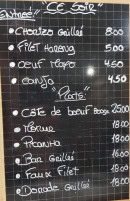 Entrées "CE SOIR"
Chorizo Grillé 8.00
Filet Hareng 5.00
Oeuf Mayo 4.50
4.50
"Plats"
Côte de boeuf 25.00
18.00
Picanha 18.00
Bar Grillé 16.00
Faux Filet 18.00
Dorade Grillé 18.00